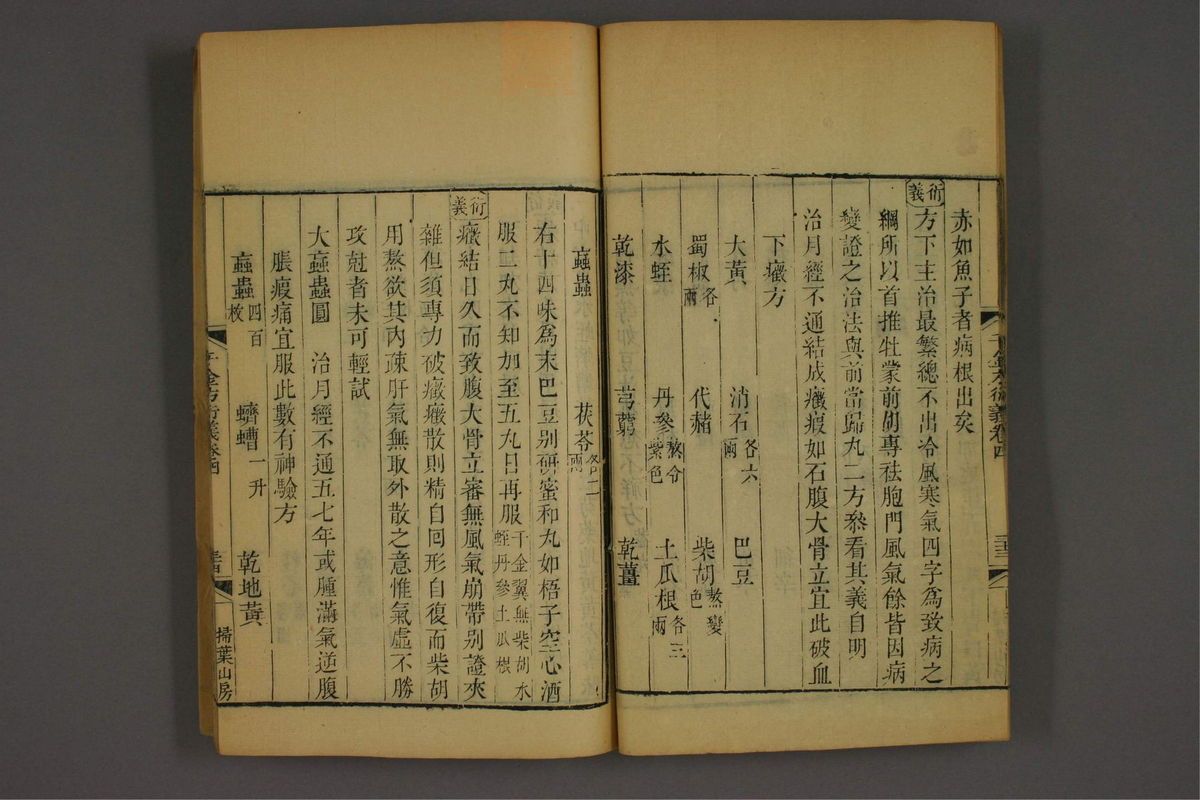 赤如魚子者病根出矣
衍義
方下主治最繁總不出冷風寒氣四字爲致病之
綱所以首推牡蒙前胡專祛胞門風氣餘皆因病
變證之治法與前當歸丸二方叅看其義自明
治月經不通結成癥瘕如石腹大骨立宜此破血
下癥方
大黃　消石各六兩　巴豆
蜀椒各一兩　代赭　柴胡熬變色
水蛭　丹參熬令紫色　土瓜根各三兩
乾漆　芎藭　乾薑
䖟蟲　茯苓各二兩
右十四味爲末巴豆别硏蜜和丸如梧子空心酒
服二丸不知加至五丸日再服千金翼無柴胡水蛭丹參土瓜根
衍義
癥結日久而致腹大骨立審無風氣崩帶别證夾
雜但須專力破癥癥散則精自回形自復而柴胡
用熬欲其內疎肝氣無取外散之意惟氣虛不勝
攻尅者未可輕試
大䖟蟲圓　治月經不通五七年或腫滿氣逆腹
脹瘕痛宜服此數有神驗方
䖟蟲四百枚　蠐螬一升　乾地黃
千金方衍義卷四
掃葉山房